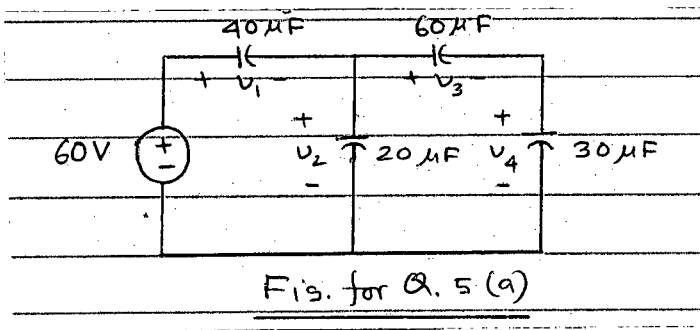 40μF 60μF
+ v₁ - + v₃ -
+ +
60V + - v₂ 20μF v₄ 30μF
- -
Fig. for Q. 5 (a)